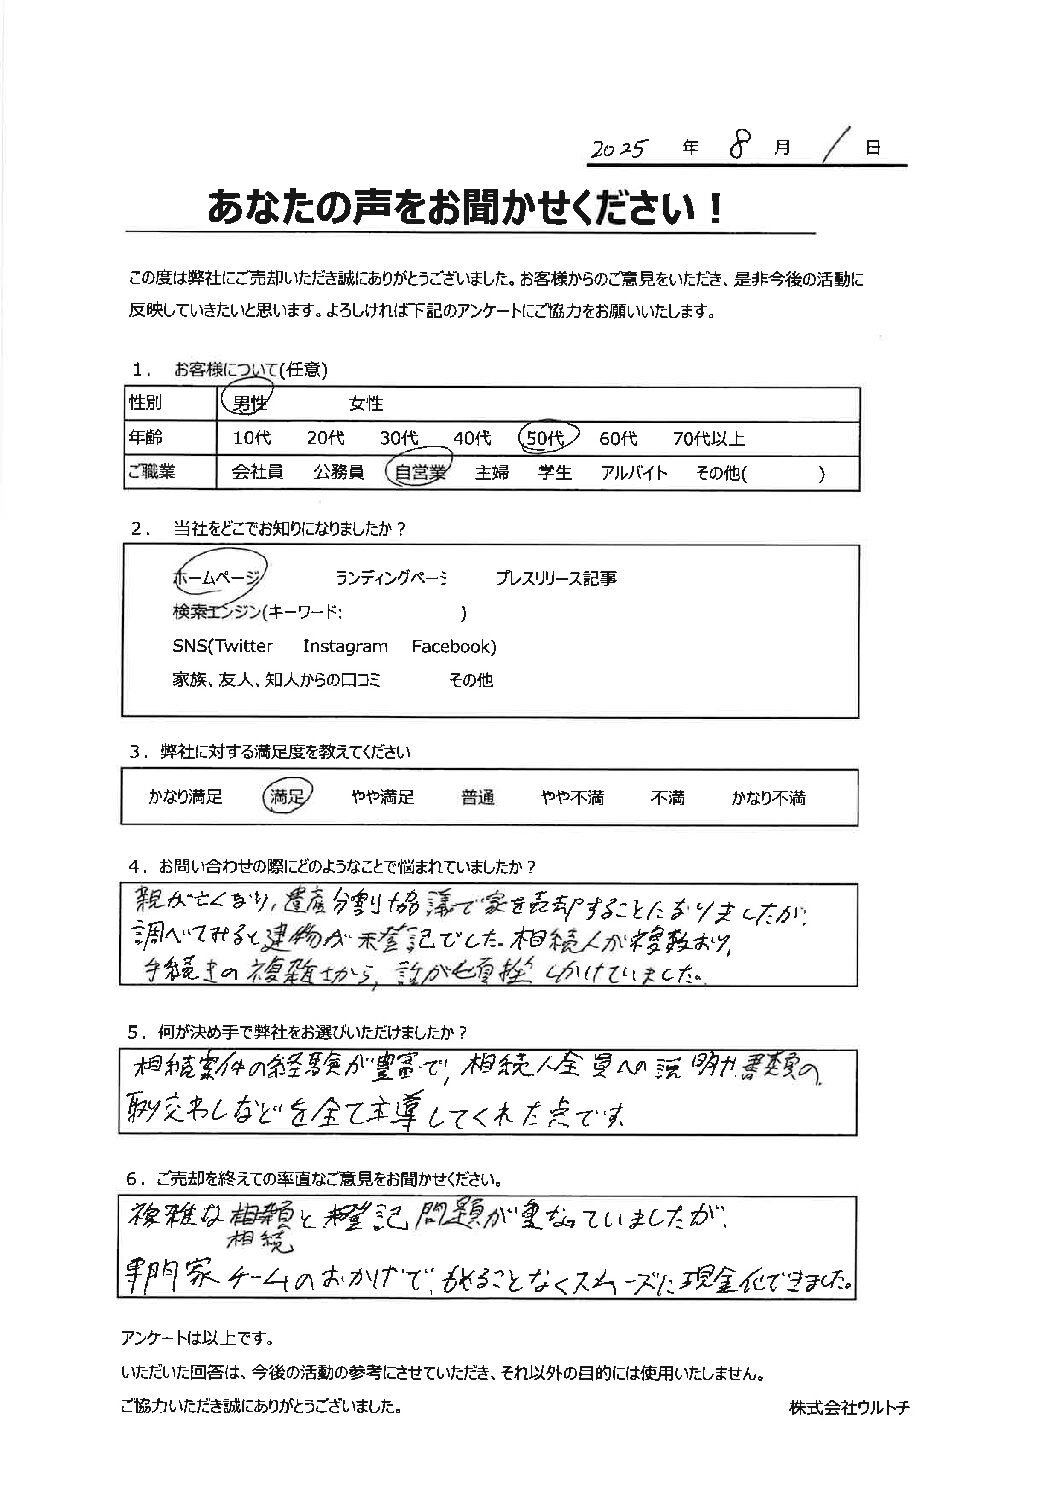 2025 年 8 月 1 日
あなたの声をお聞かせください!
この度は弊社にご売却いただき誠にありがとうございました。お客様からのご意見をいただき、是非今後の活動に
反映していきたいと思います。よろしければ下記のアンケートにご協力をお願いいたします。
1. お客様について(任意)
性別 男性 女性
年齢 10代 20代 30代 40代 50代 60代 70代以上
ご職業 会社員 公務員 自営業 主婦 学生 アルバイト その他( )
2. 当社をどこでお知りになりましたか?
ホームページ ランディングページ プレスリリース記事
検索エンジン(キーワード: )
SNS(Twitter Instagram Facebook)
家族、友人、知人からの口コミ その他
3. 弊社に対する満足度を教えてください
かなり満足 満足 やや満足 普通 やや不満 不満 かなり不満
4. お問い合わせの際にどのようなことで悩まれていましたか?
親が亡くなり、遺産分割協議で家を売却することになりましたが、
調べてみると建物が未登記でした。相続人が複数おり、
手続きの複雑さから、誰が頓挫しかけていました。
5. 何が決め手で弊社をお選びいただけましたか?
相続案件の経験が豊富で、相続人全員への説明や書類の
取り交わしなどを全て主導してくれた点です。
6. ご売却を終えての率直なご意見をお聞かせください。
複雑な と登記問題が重なっていましたが、
相続
専門家チームのおかげで、もめることなくスムーズに現金化できました。
アンケートは以上です。
いただいた回答は、今後の活動の参考にさせていただき、それ以外の目的には使用いたしません。
ご協力いただき誠にありがとうございました。 株式会社ウルトチ